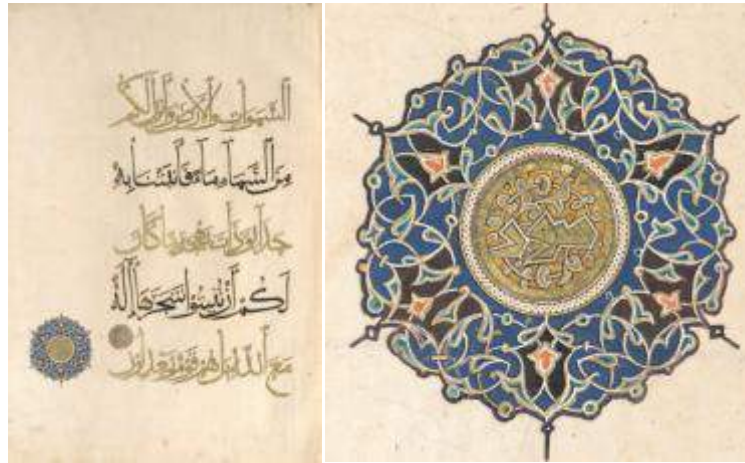 السموات والأرض وأنزل لكم
من السماء ماء فأنبتنا به
حدائق ذات بهجة ما كان
لكم أن تنبتوا شجرها أإله
مع الله بل هم قوم يعدلون